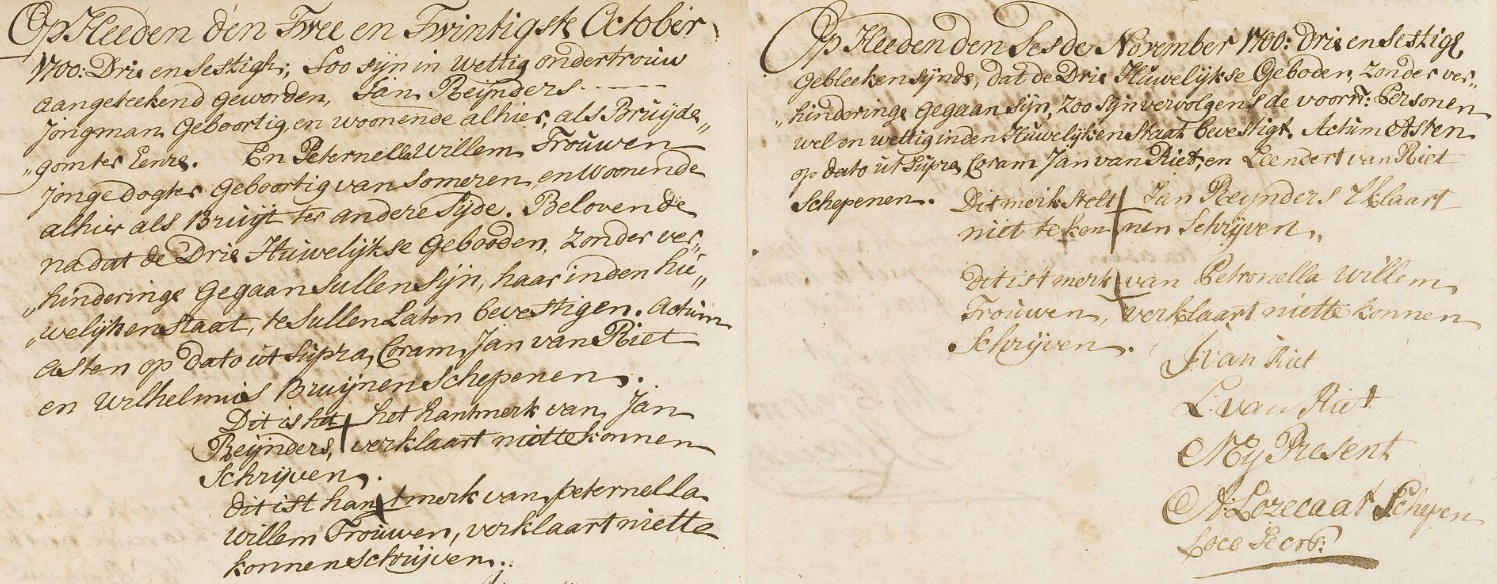 Op Heeden den Twee en Twintigste October
1700: Drie en sestigh; Soo sijn in wettig ondertrouw
aangeteekend geworden, Jan Reijnders
Jongman Geboortig en woonende alhier, als Bruijde„
„gom ter Eenre. En Peternella Willem Trouwen
Jonge dogter Geboortig van Someren, en Woonende
alhier als Bruijt ter andere sijde. Belovende
na dat de Drie Huwelijkse Gebooden, zonder ver„
„hinderinge Gegaan sullen sijn, haar in den hu„
„welijken staat, te sullen Laten bevestigen. Actum
Asten op dato ut supra, Coram, Jan van Riet
en Wilhelmus Bruijnen Schepenen.
Dit is het het hantmerk van, Jan
Reijnders, verklaart niet te konnen
Schrijven.
dit is t hantmerk van peternella
Willem Trouwen, verklaart niet te
konnen schrijven.
Op Heeden den Sesde November 1700: Drie en Sestigh
Gebleeken sijnde, dat de Drie Huwelijkse Geboden, zonder ver„
„hinderinge gegaan sijn, zoo sijn vervolgens de voorn: Personen
wel en wettig in den Huwelijken Staat bevestigt. Actum Asten
op dato ut Supra, Coram Jan van Riet, en Leendert van Riet
Schepenen.
Dit merk stelt Jan Reijnders verklaart
niet te konnen Schrijven.
dit is t merk van Petronella Willem
Trouwen, verklaart niet te konnen
Schrijven.
J. van Riet
L. van Riet
Mij Present
A: Losecaat Schepen
Loco Secrs: